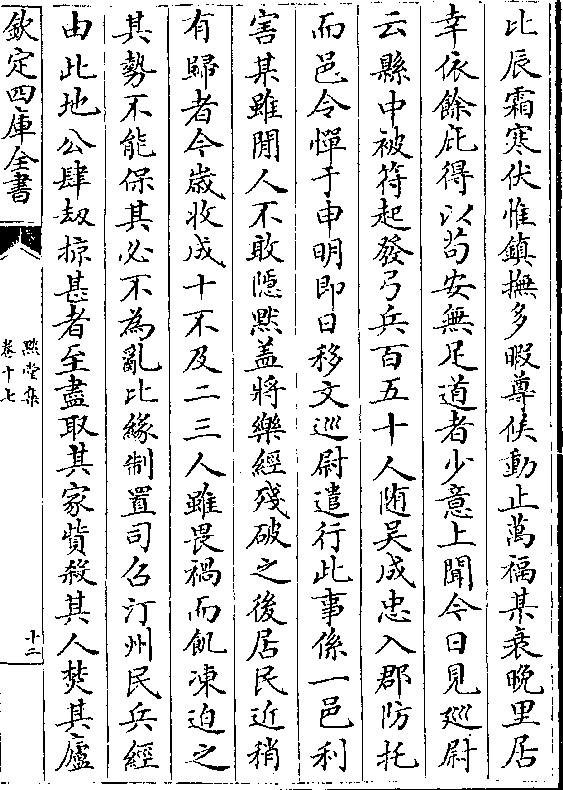 比辰霜寒伏惟鎮撫多暇尊候動止萬福某衰晚里居
幸依餘庇得以茍安無足道者少意上聞今日見廵尉
云縣中被符起發弓兵百五十人随吴成忠入郡防托
而邑令憚于申明即日移文巡尉遣行此事係一邑利
害某雖閒人不敢隠黙盖將樂經殘破之後居民近稍
有歸者今嵗收成十不及二三人雖畏禍而飢凍迫之
其勢不能保其必不為亂比緣制置司召汀州民兵經
由此地公肆刼掠甚者至盡取其家貲殺其人焚其廬
欽定四庫全書
黙堂集
卷十七
十二